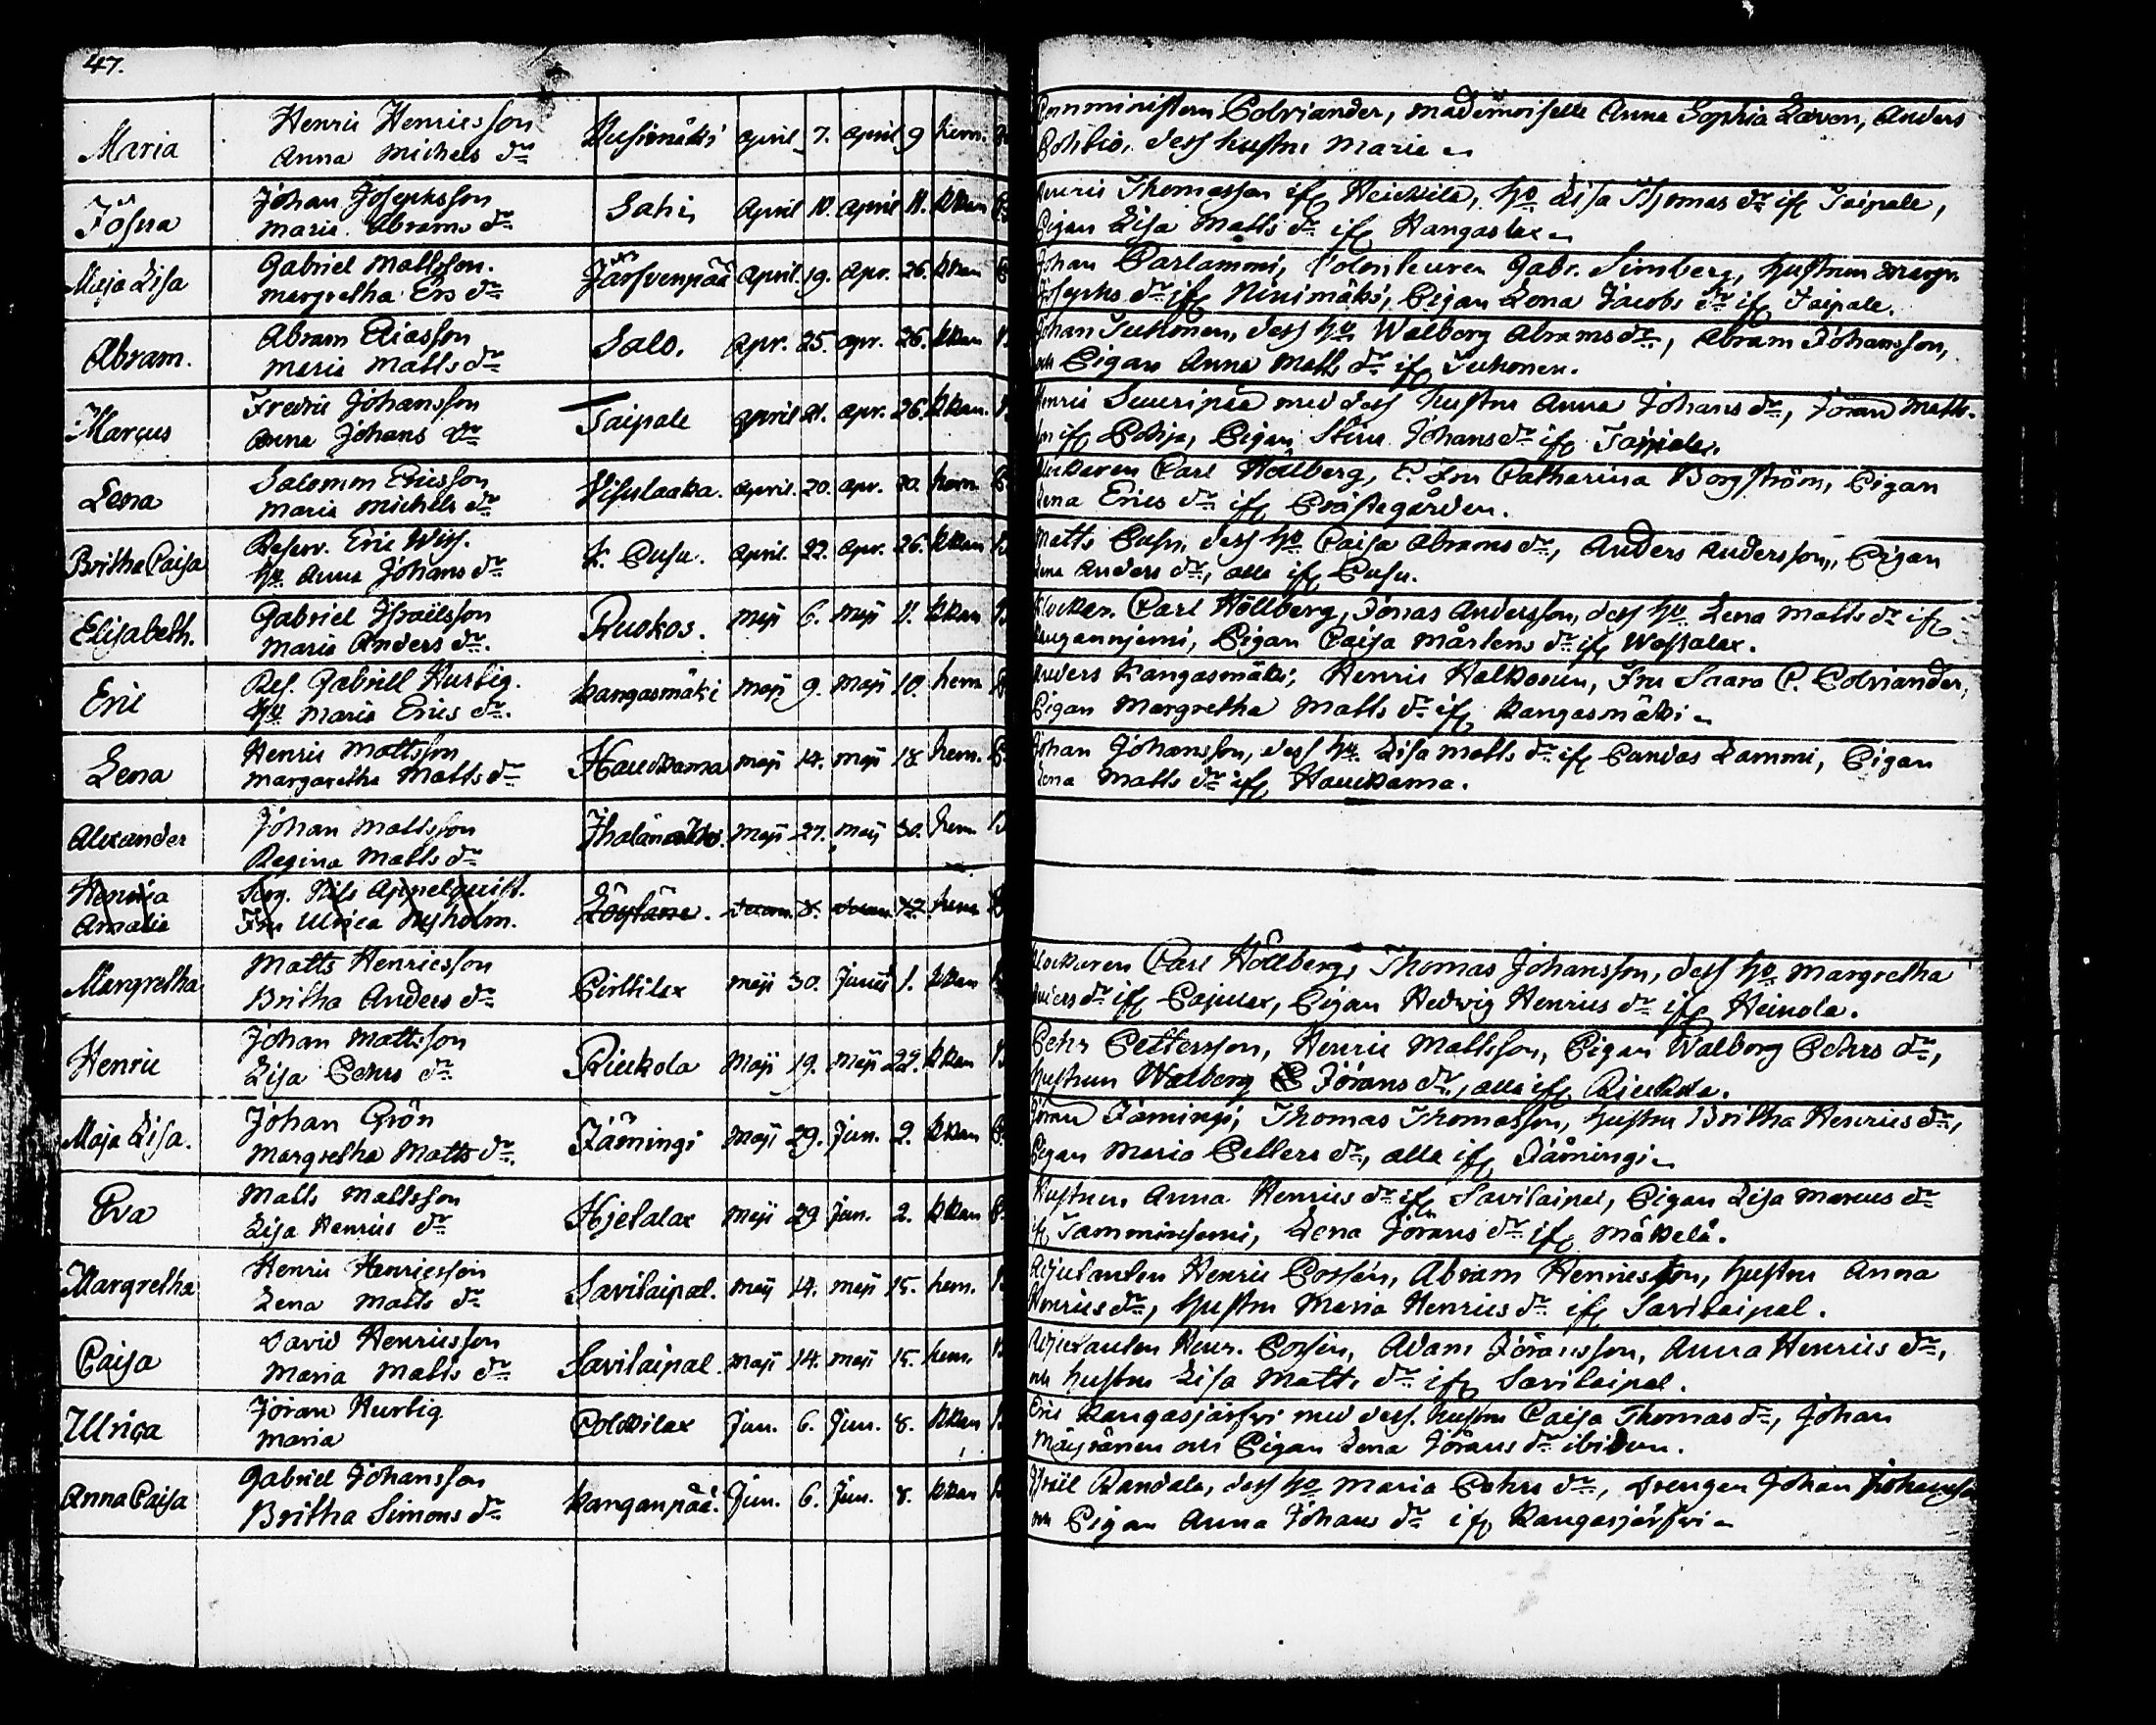 47.
Maria
Henric Henricsson
Anna Michels dr
Kusimäki April 7. April 9 hem.
Comministern Polviander, Mademoiselle Anna Sophia Anders
dess hustru Maria
Josua
Johan Josephsson
Maria Abrams dr
Sahi April 10. April 11. kkan
Henric Thomasson if Heickila, hu Lisa Thomas dr if Taipale,
Pigan Lisa Matts dr if Kangaslax
Maja Lisa
Gabriel Mattsson.
Margretha Ers dr
Järfvenpää April. 19. Apr. 26. kkan
Johan Parlammi, Gabr. Simberg, hustrun Margr.
Josephs dr if Ninimäki, Pigan Lena Jacobs dr if Taipale.
Abram.
Abram Ericsson
Maria Matts dr
Salo. Apr. 25. Apr. 26. kkan
Johan Tuhonen, dess hu Walborg Abrams dr, Abram Johansson,
och Pigan Anna Matts dr if Tuhonen.
Marcus
Fredric Johansson
Anna Johans dr
Taipale April 21. Apr. 26. kkan.
Henric Suuripää med dess hustru Anna Johans dr, Jöran Matts-
son if Pohja, Pigan Stina Johans dr if Taipale.
Lena
Salomon Ericsson
Maria Michels dr
Visulaaka. April. 20. Apr. 30. hem.
Klockaren Carl Hållberg, C. Fru Catharina Borgström, Pigan
Lena Erics dr if Prästegården.
Britha Caisa
Reserv. Eric Wiss.
hu. Anna Johans dr
Pusu. April. 22. Apr. 26. kkan
Matts Pusu, dess hu Caisa Abrams dr, Anders Andersson, Pigan
Lena Anders dr, alla if Pusu.
Elisabeth.
Gabriel Israelsson
Maria Anders dr.
Ruokos. Maji 6. Maji 11. kkan
Klockar. Carl Hållberg, Jonas Andersson, dess hu Lena Matts dr if
Pigan Caisa Mårtens dr if Wessalax.
Eric
Res. Gabriell Hurtig.
hu Maria Erics dr.
Kangasmäki Maji 9. Maji 10. hem
Anders Kangasmäki, Henric Halkosen, Fru Saara C. Polviander,
Pigan Margretha Matts dr if Kangasmäki
Lena
Henric Mattsson
Margaretha Matts dr
Hauckama Maji 14. Maji 18 hem.
Johan Johansson, dess hu Lisa Matts dr if Pandas Lammi, Pigan
Lena Matts dr if Hauckama.
Alexander
Johan Mattsson
Regina Matts dr
Maji 27. Maij 30. hem
Henrica
Amalia
Serg. Nils Appelquist.
Fru Ulrica Nyholm.
Löytäne. 8. hem
Margretha
Matts Henricsson
Britha Anders dr
Pirttilax Maji 30. Junii 1. kkan
Klockaren Carl Hållberg, Thomas Johansson, dess hu Margretha
Anders dr if Pajulax, Pigan Hedwig Henrics dr if Heinola.
Henric
Johan Mattsson
Lisa Pehrs dr
Rieckola Maji 19. Maji 22. kkan
Pehr Pettersson, Henric Mattsson, Pigan Walborg Pehrs dr,
hustrun Walborg Jörans dr, alla if Rieckola.
Maja Lisa.
Johan Grön
Margretha Matts dr.
Jämingi Maji 29. Jun. 2. kkan
Jöran Jämingi, Thomas Thomasson, hustru Britha Henrics dr,
Pigan Maria Petters dr, alla if Jämingi
Eva
Matts Mattsson
Lisa Henrics dr
Hjetalax Maji 29 Jun. 2. kkan
Hustrun Anna Henrics dr if Savitaipal, Pigan Lisa Marcus dr
if Tamminiemi, Lena Jörans dr if Mäkelä.
Margretha
Henric Henricsson
Lena Matts dr
Savitaipal. Maij 14. Maji 15. hem.
Adjutanten Henric Porsén, Abram Henricsson, hustru Anna
Henrics dr, hustru Maria Henrics dr if Savitaipal.
Caisa
David Henricsson
Maria Matts dr
Savitaipal. Maji 14. Maji 15. hem.
Adjutanten Henr. Porsén, Adam Jöransson, Anna Henrics dr,
och hustru Lisa Matts dr if Savitaipal.
Ulrica
Jöran Hurtig
Maria
Polckilax Jun. 6. Jun. 8. kkan
Eric Kangasjärfvi med dess hustru Caisa Thomas dr, Johan
Mäyränen och Pigan Lena Jörans dr ibidem.
Anna Caisa
Gabriel Johansson
Britha Simons dr
Kanganpää. Jun. 6. Jun. 8. kkan
Randala, dess hu Maria Pehrs dr, Drengen Johan Johansson
och Pigan Anna Johans dr if Kangasjärfvi